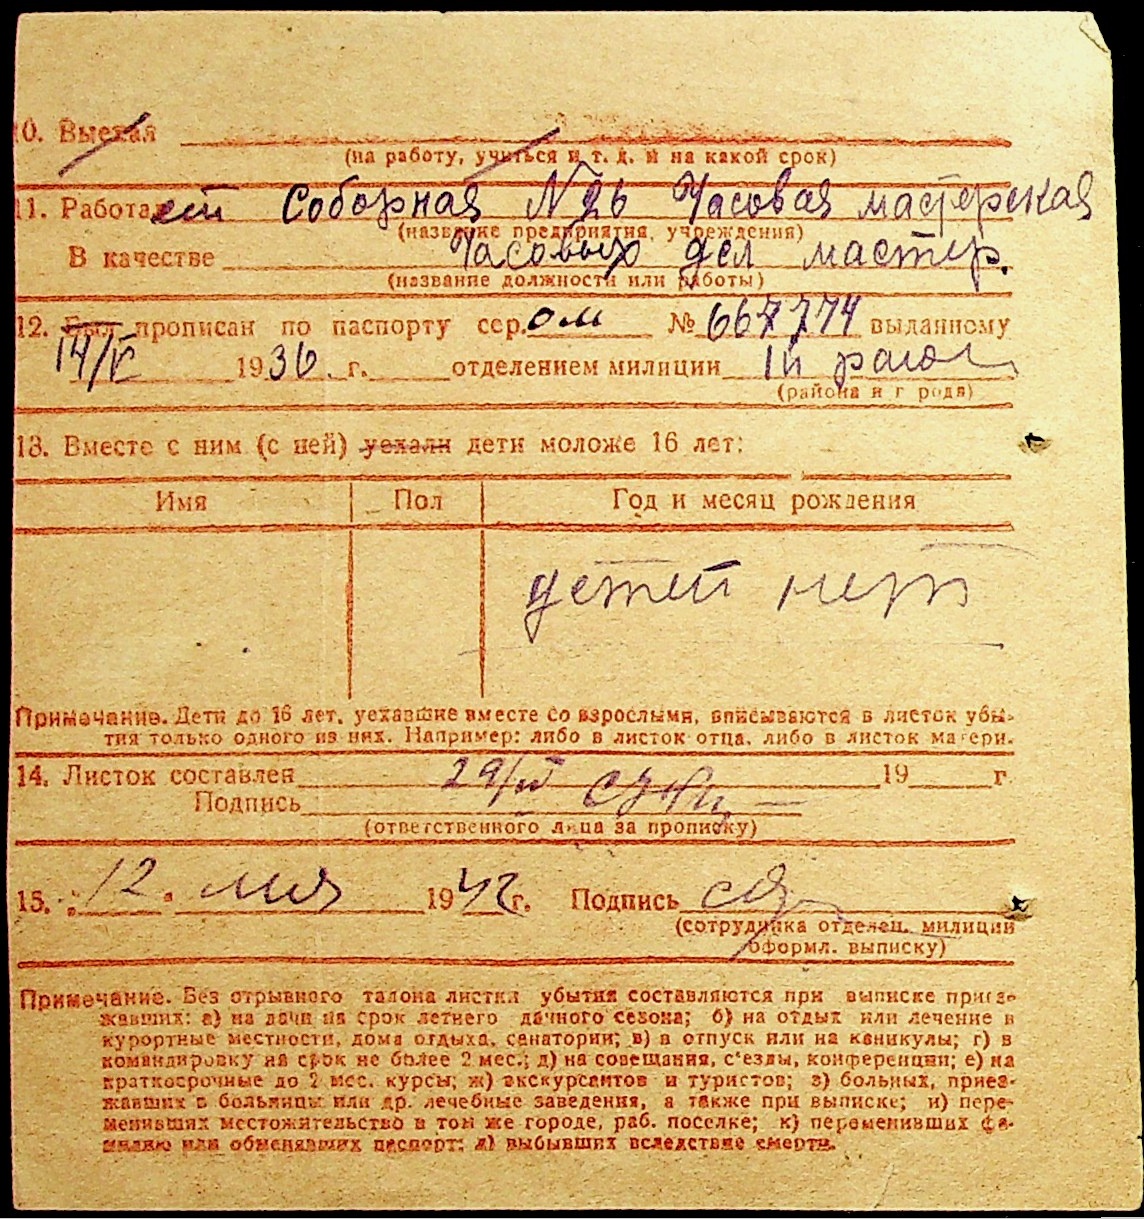 10. Выехал
(на работу, учиться и т. д. и на какой срок)
11. Работает Соборная №26 Часовая мастерская
(название предприятия, учреждения)
В качестве Часовых дел мастер.
(название должности или работы)
12. Был прописан по паспорту сер. ом № 667774 выданному
14/V 1936. г. отделением милиции 1й район
(района и г рода)
13. Вместе с ним (с ней) уехали дети моложе 16 лет:
Имя Пол Год и месяц рождения
детей нет
Примечание. Дети до 16 лет, уехавшие вместе со взрослыми, вписываются в листок убы-
тия только одного из них. Например: либо в листок отца, либо в листок матери.
14. Листок составлен 29/IV 19 г
Подпись
(ответственного лица за прописку)
15. „12" мая 1942 г. Подпись
(сотрудника отделен. милиции
оформл. выписку)
Примечание. Без отрывного талона листки убытия составляются при выписке приез-
жавших: а) на дачи на срок летнего дачного сезона; б) на отдых или лечение в
курортные местности, дома отдыха, санатории; в) в отпуск или на каникулы; г) в
командировку на срок не более 2 мес.; д) на совещания, с'езды, конференции; е) на
краткосрочные до 2 мес. курсы; ж) экскурсантов и туристов; з) больных, приез-
жавших в больницы или др. лечебные заведения, а также при выписке; и) пере-
менивших местожительство в том же городе, раб. поселке; к) переменивших фа-
милию или обменявших паспорт; л) выбывших вследствие смерти.